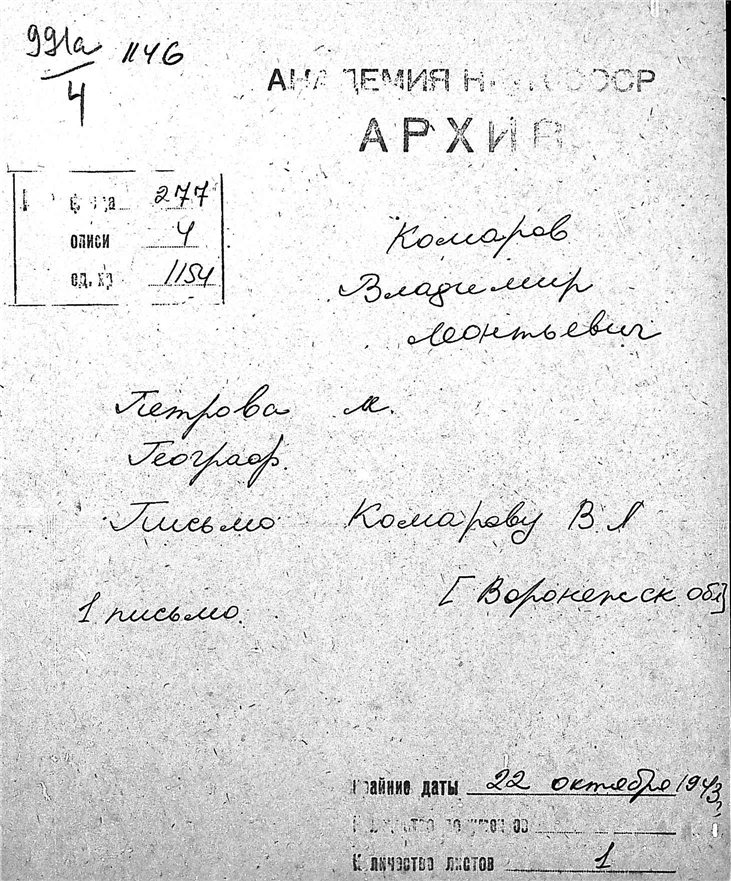 991а/4 1146
АКАДЕМИЯ НАУК СССР
АРХИВ
№ фонда 277
описи 4
ед. хр 1154
Комаров
Владимир
Леонтьевич
Петрова М.
Географ.
Письмо Комарову В Л
[Воронежск обл]
1 письмо.
Крайние даты 22 октября 1943
Количество документов
Количество листов 1